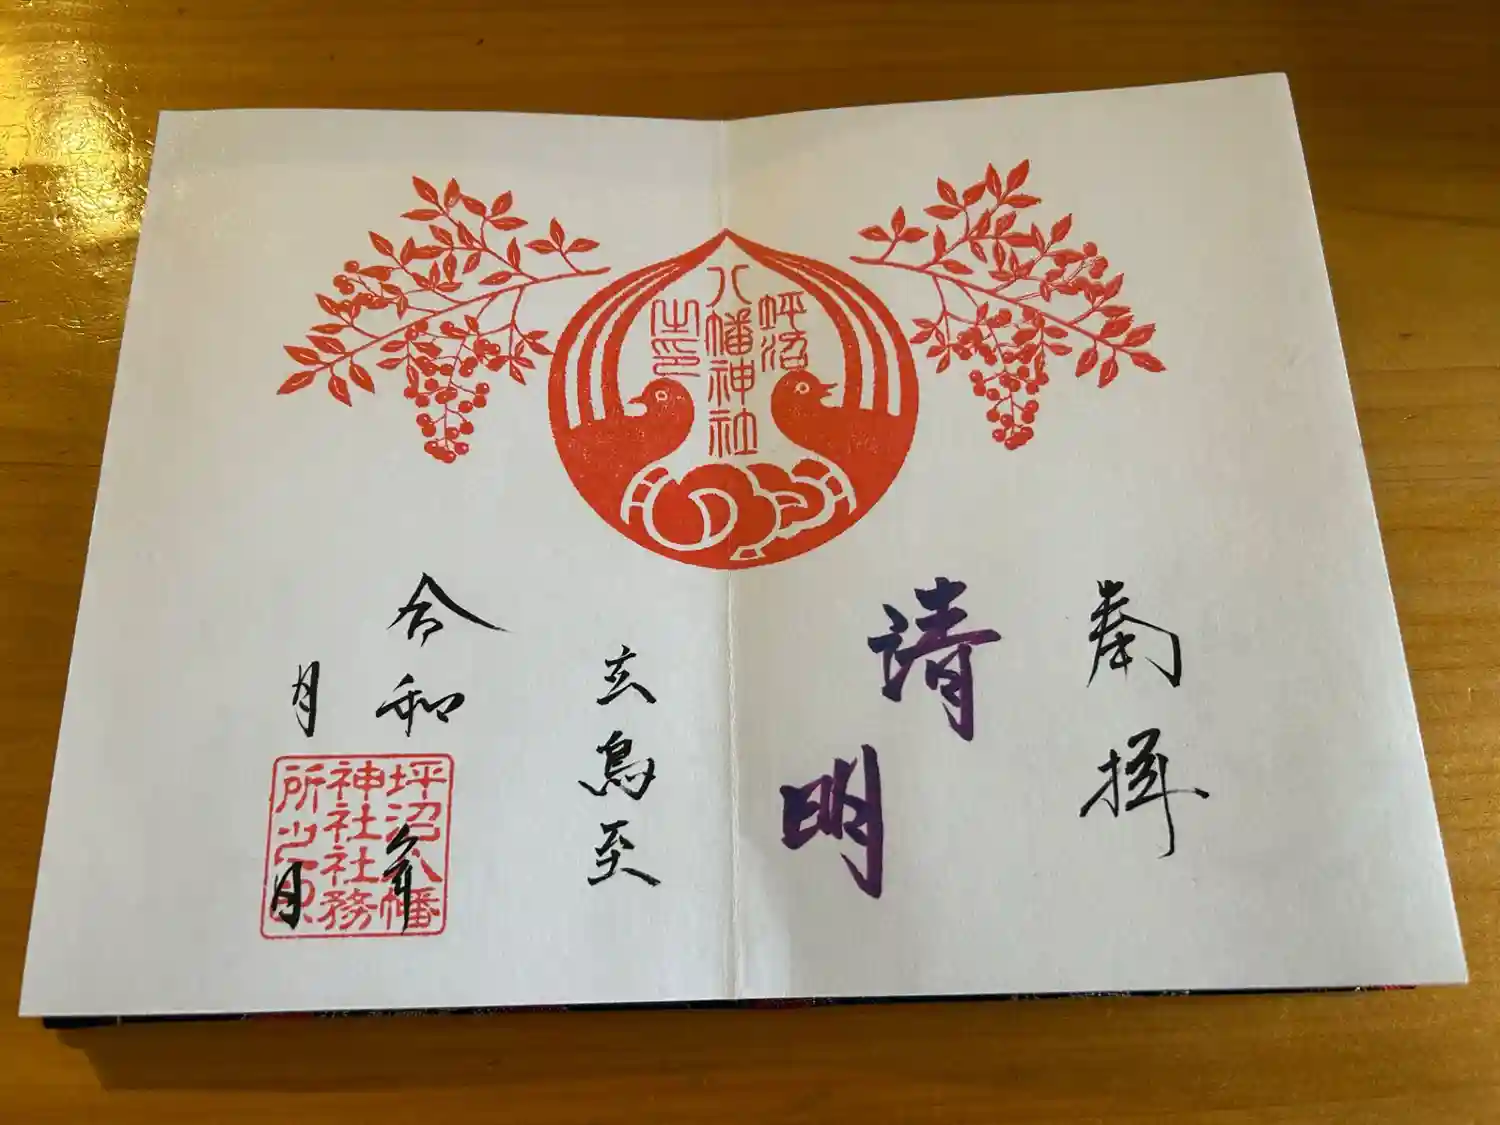 奉拝
清明
坪沼
八幡神社
之印
玄鳥至
令和 年
月 日
坪沼八幡
神社社務
所之印